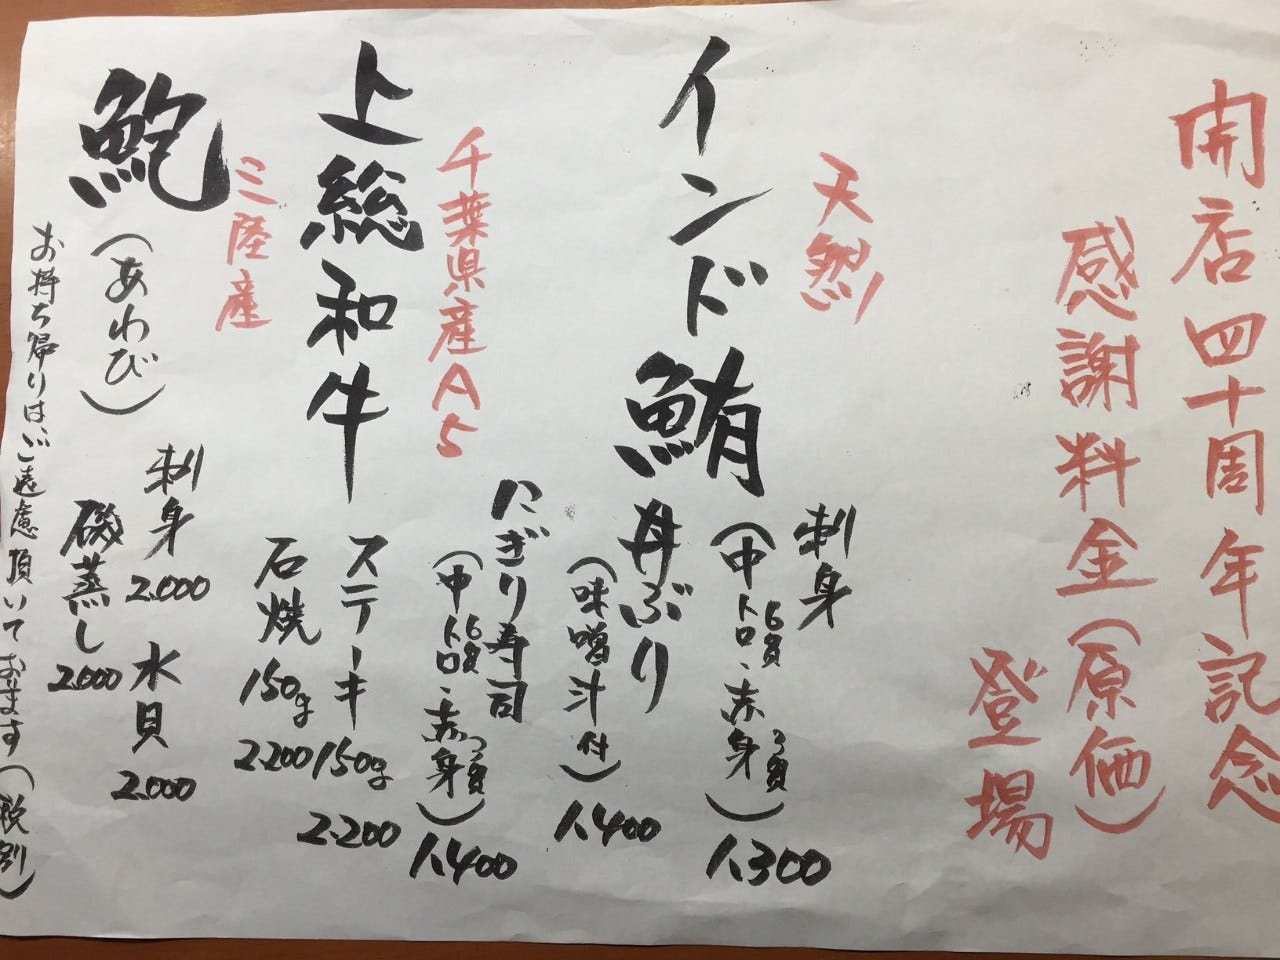 開店四十周年記念
感謝料金(原価)
登場
天然
インド鮪
刺身
(中トロ6貫・赤身3貫)
1,300
丼ぶり
(味噌汁付)
1,400
にぎり寿司
(中トロ6貫・赤身3貫)
1,400
千葉県産A5
上総和牛
ステーキ
150g
2,200
石焼
150g
2,200
三陸産
鮑
(あわび)
刺身
2,000
水貝
2,000
磯蒸し
2,000
お持ち帰りは、ご遠慮頂いております(税別)